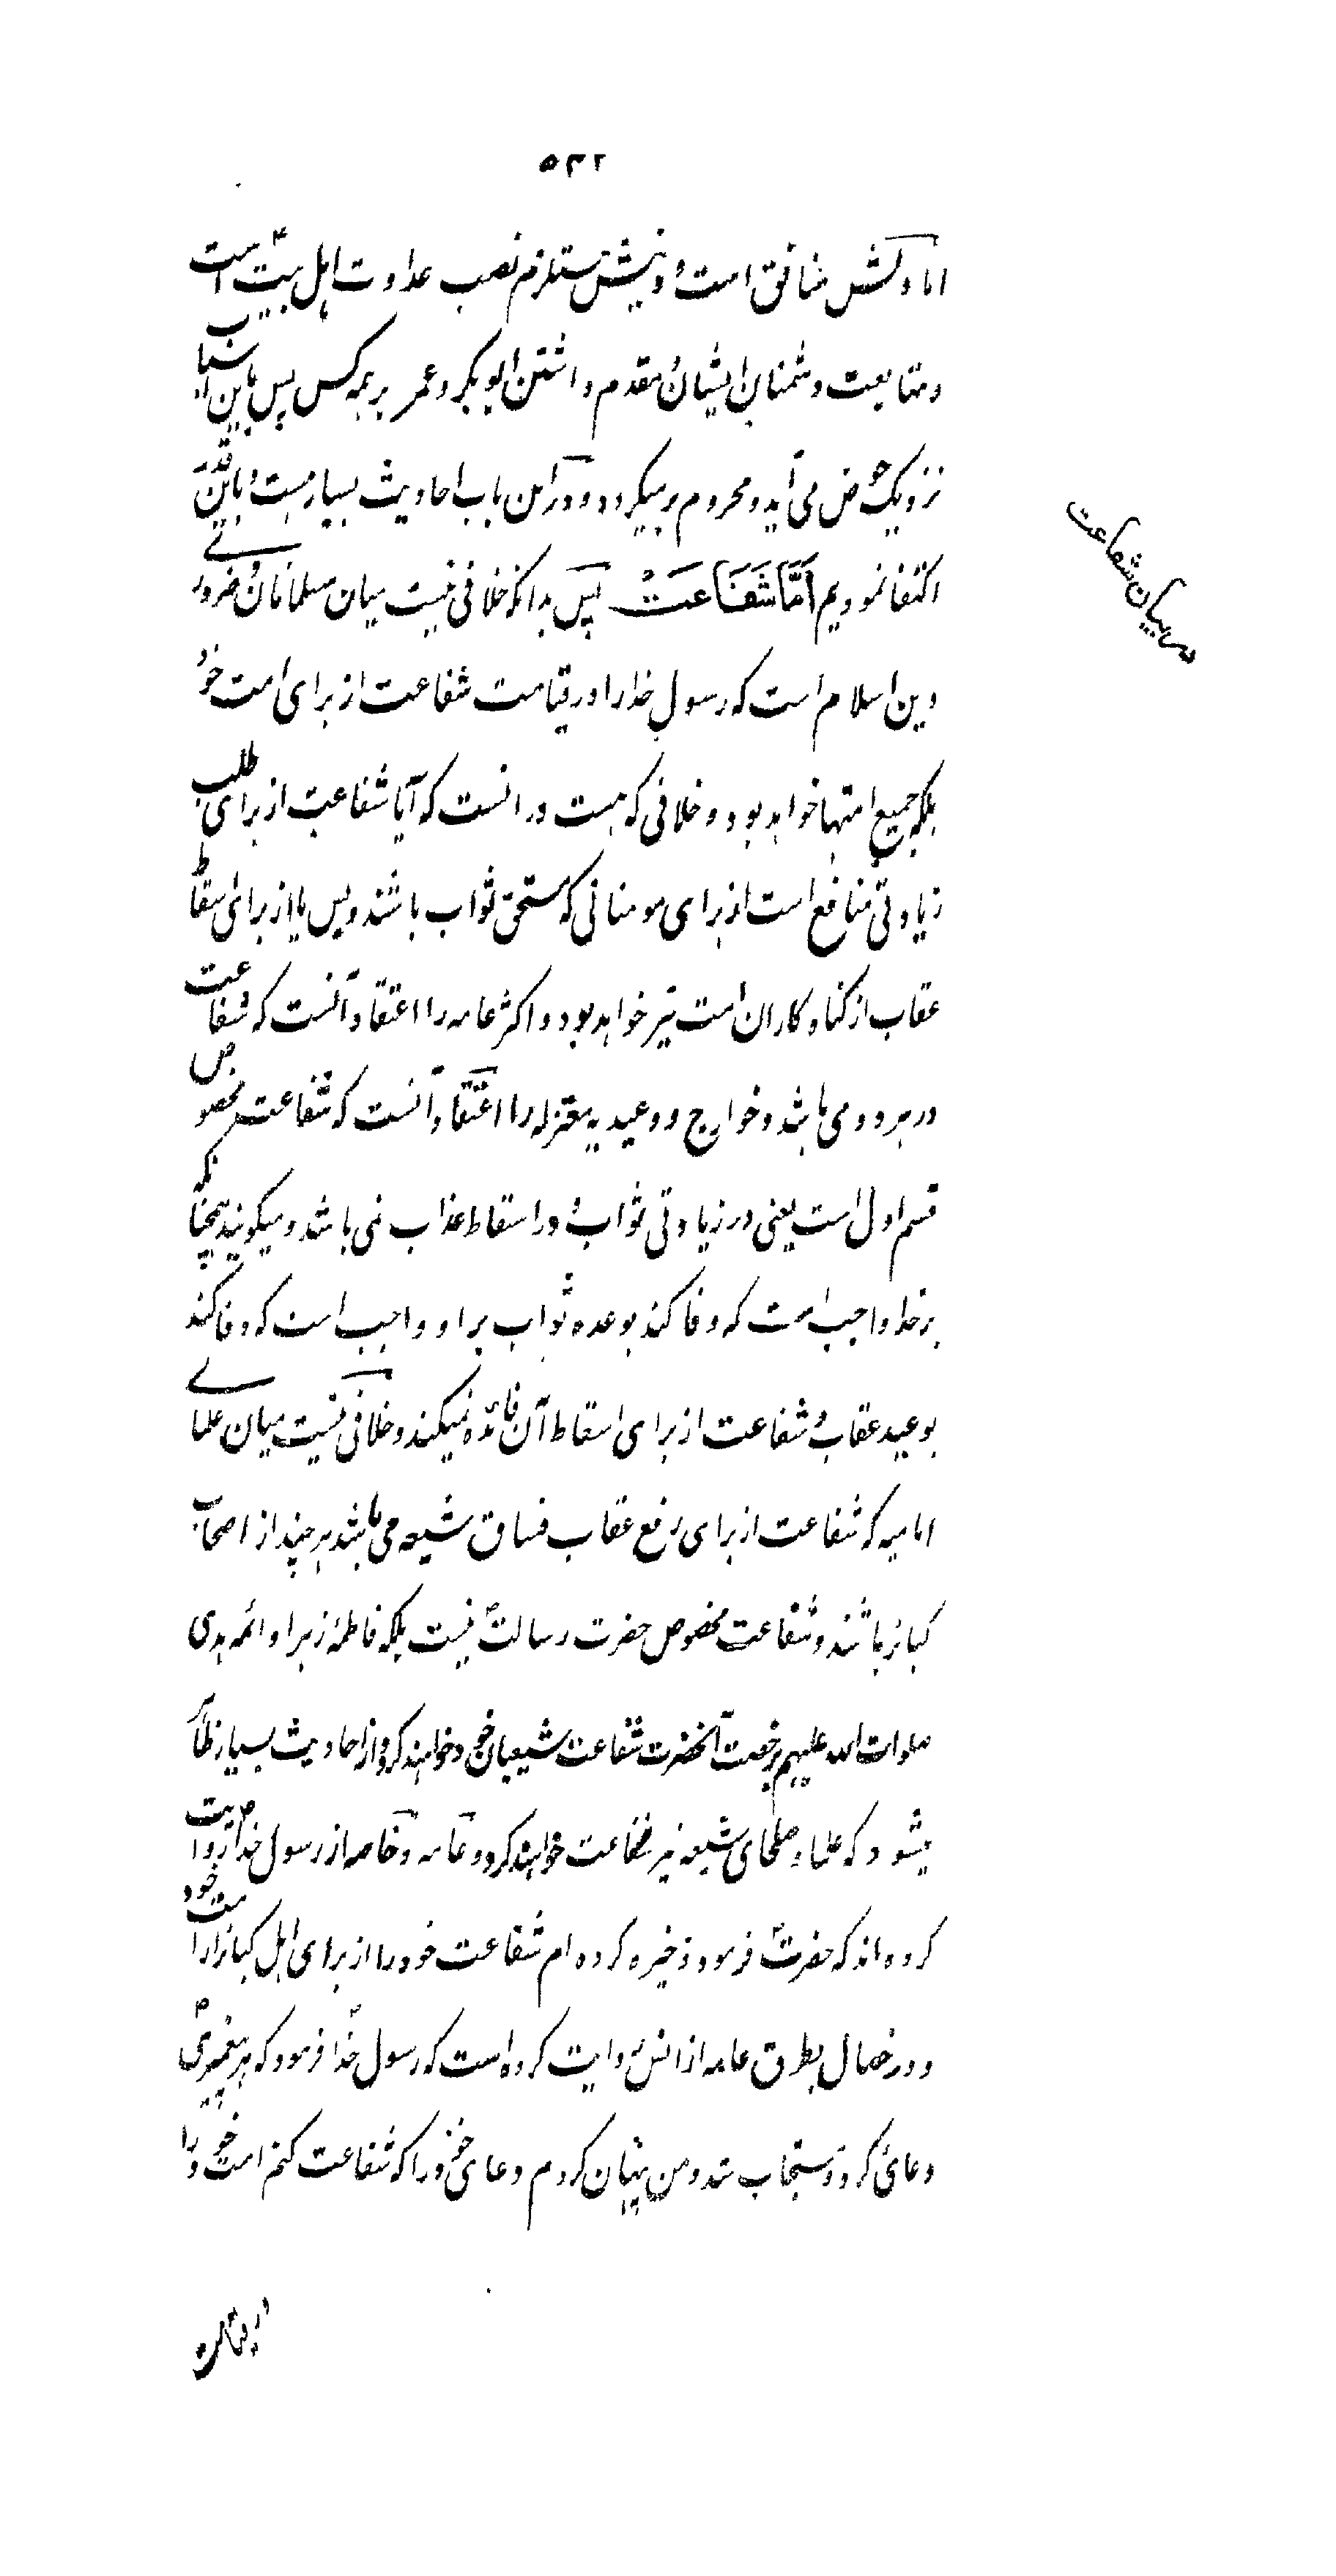 ۵۳۲
اما دلش منافق است و دینش مستلزم نصب عداوت اهل بیت است
و متابعت دشمنان ایشان و مقدم داشتن ابوبکر و عمر بر همه کس پس باین اسباب
نزدیک حوض می آید و محروم برمیگردد و در این باب احادیث بسیار هست و باین قدر
اکتفا نمودیم اَمَّا شَفَاعَتْ پس بدانکه خلافی نیست میان مسلمانان و ضروری
دین اسلام است که رسول خدا را در قیامت شفاعت از برای امت خود
بلکه جمیع امتها خواهد بود و خلافی که هست در انست که آیا شفاعت از برای طلب
زیادتی منافع است از برای مومنانی که مستحق ثواب باشند و بس یا از برای اسقاط
عقاب از گناه کاران امت نیز خواهد بود و اکثر عامه را اعتقاد آنست که شفاعت
در هر دو می باشد و خوارج و وعیدیه معتزله را اعتقاد آنست که شفاعت مخصوص
قسم اول است یعنی در زیادتی ثواب و در اسقاط عذاب نمی باشد و میگویند همچنانکه
بر خدا واجب است که وفا کند بوعده ثواب بر او واجب است که وفا کند
بوعید عقاب و شفاعت از برای اسقاط آن فائده نمیکند و خلافی نیست میان علمای
امامیه که شفاعت از برای رفع عقاب فساق شیعه می باشد هر چند از اصحاب
کبائر باشند و شفاعت مخصوص حضرت رسالت نیست بلکه فاطمهٔ زهرا و ائمه هدی
صلوات الله علیهم برخصت آنحضرت شفاعت شیعیان خود خواهند کرد و از احادیث بسیار ظاهر
میشود که علما و صلحای شیعه نیز شفاعت خواهند کرد و عامه و خاصه از رسول خدا روایت
کرده اند که حضرت فرمود ذخیره کرده ام شفاعت خود را از برای اهل کبائر از امت خود
و در خصال بطرق عامه از انس روایت کرده است که رسول خدا فرمود که هر پیغمبری
دعائی کرد و مستجاب شد و من پنهان کردم دعای خود را که شفاعت کنم امت خود را
در بیان شفاعت